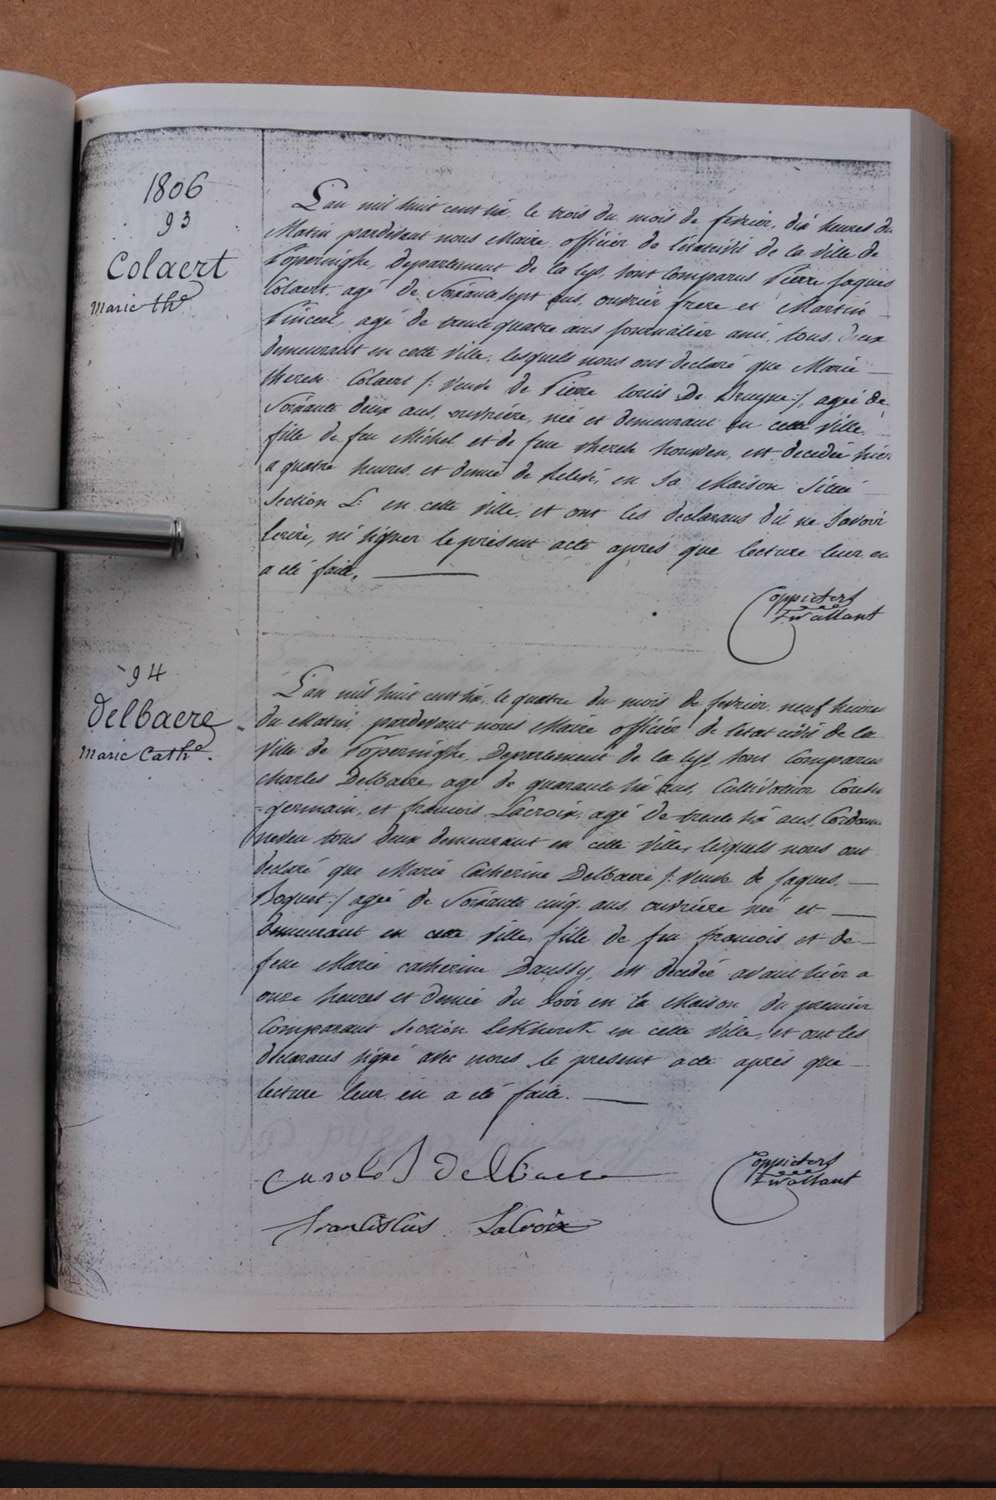 1806
93
Colaert
Marie Th.e
L'an mil huit cent six, le trois du mois de fevrier, dix heures du
Matin pardevant nous Maire, officier de l'état civil de la Ville de
Poperinghe, Departement de la Lys, sont Comparus Pierre Jaques
Colaert, agé de Soixante sept ans, ouvrier frere et Martin
Vincent, agé de trente quatre ans journalier ami, tous deux
demeurant en cette Ville, lesquels nous ont declaré que Marie
therese Colaert /: Veuve de Pierre Louis De Bruyne :/, agée de
Soixante deux ans, ouvriére, née et demeurant en cette Ville,
fille de feu Michel et de feue therese, est decedée hier
a quatre heures et demie de relevé, en Sa Maison Située
Section L. en cette Ville, et ont les declarans dit ne Savoir
Ecrire, ni signer le présent acte après que lecture leur en
a été faite.
Coppieters
T'wallant
94
Delbaere
Marie Cath.e
L'an mil huit cent six, le quatre du mois de fevrier, neuf heures
du Matin, pardevant nous Maire officier de l'etat civil de la
Ville de Poperinghe, Departement de la Lys, sont Comparus
Charles Delbaere, agé de quarante six ans, Cultivateur Cousin
germain, et francois Lacroix, agé de trente six ans, Cordon.
neveu tous deux demeurant en cette Ville, lesquels nous ont
declaré que Marie Catherine Delbaere /: Veuve de Jaques
Boquet :/ agée de Soixante cinq ans, ouvriére née et
Demeurant en cette Ville, fille de feu francois et de
feue Marie catherine Daussy, est decedée avant hier a
onze heures et demie du Soir en la Maison du premier
Comparant Section en cette Ville, et ont les
declarans signé avec nous le present acte après que
lecture leur en a été faite.
Carolus Delbaere
Franciscus Lacroix
Coppieters
T'wallant